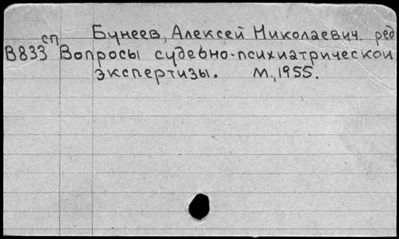 Бунеев, Алексей Николаевич. ред
сп
В833 Вопросы судебно-психиатрической
экспертизы. М., 1955.